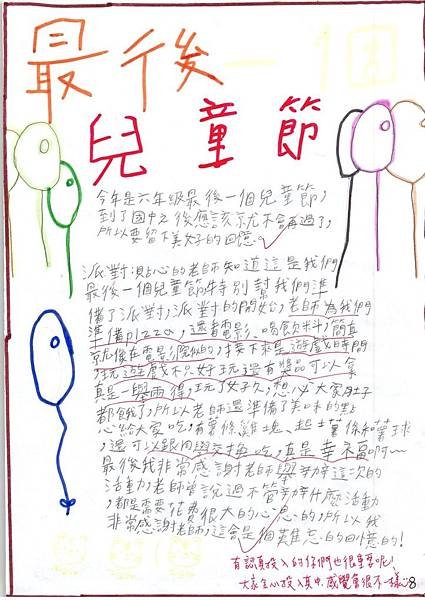 最後一個
兒童節
今年是六年級最後一個兒童節,
到了國中之後應該就不會再過了,
所以要留下美好的回憶。
派對點心的老師知道這是我們
最後一個兒童節特別幫我們準
備了派對,派對的開始,老師為我們
準備pizza,還看電影、喝飲料,簡直
就像在電影院似的,接下來是遊戲時間
,玩遊戲不只好玩還有獎品可以拿
真是一舉兩得,玩了好久,想必大家肚子
都餓了,所以老師還準備了美味的點
心給大家吃,有薯條雞塊、起士薯條和薯球
,還可以跟同學交換吃,真是幸福啊~
最後我非常感謝老師舉辦這次的
活動,老師曾說過不管辦什麼活動
,都是需要花費很大的心思的,所以我
非常感謝老師,這會是個難忘的回憶的!
有認真投入的仔們也很重要呢!
大家全心投入其中,感覺會很不一樣
8